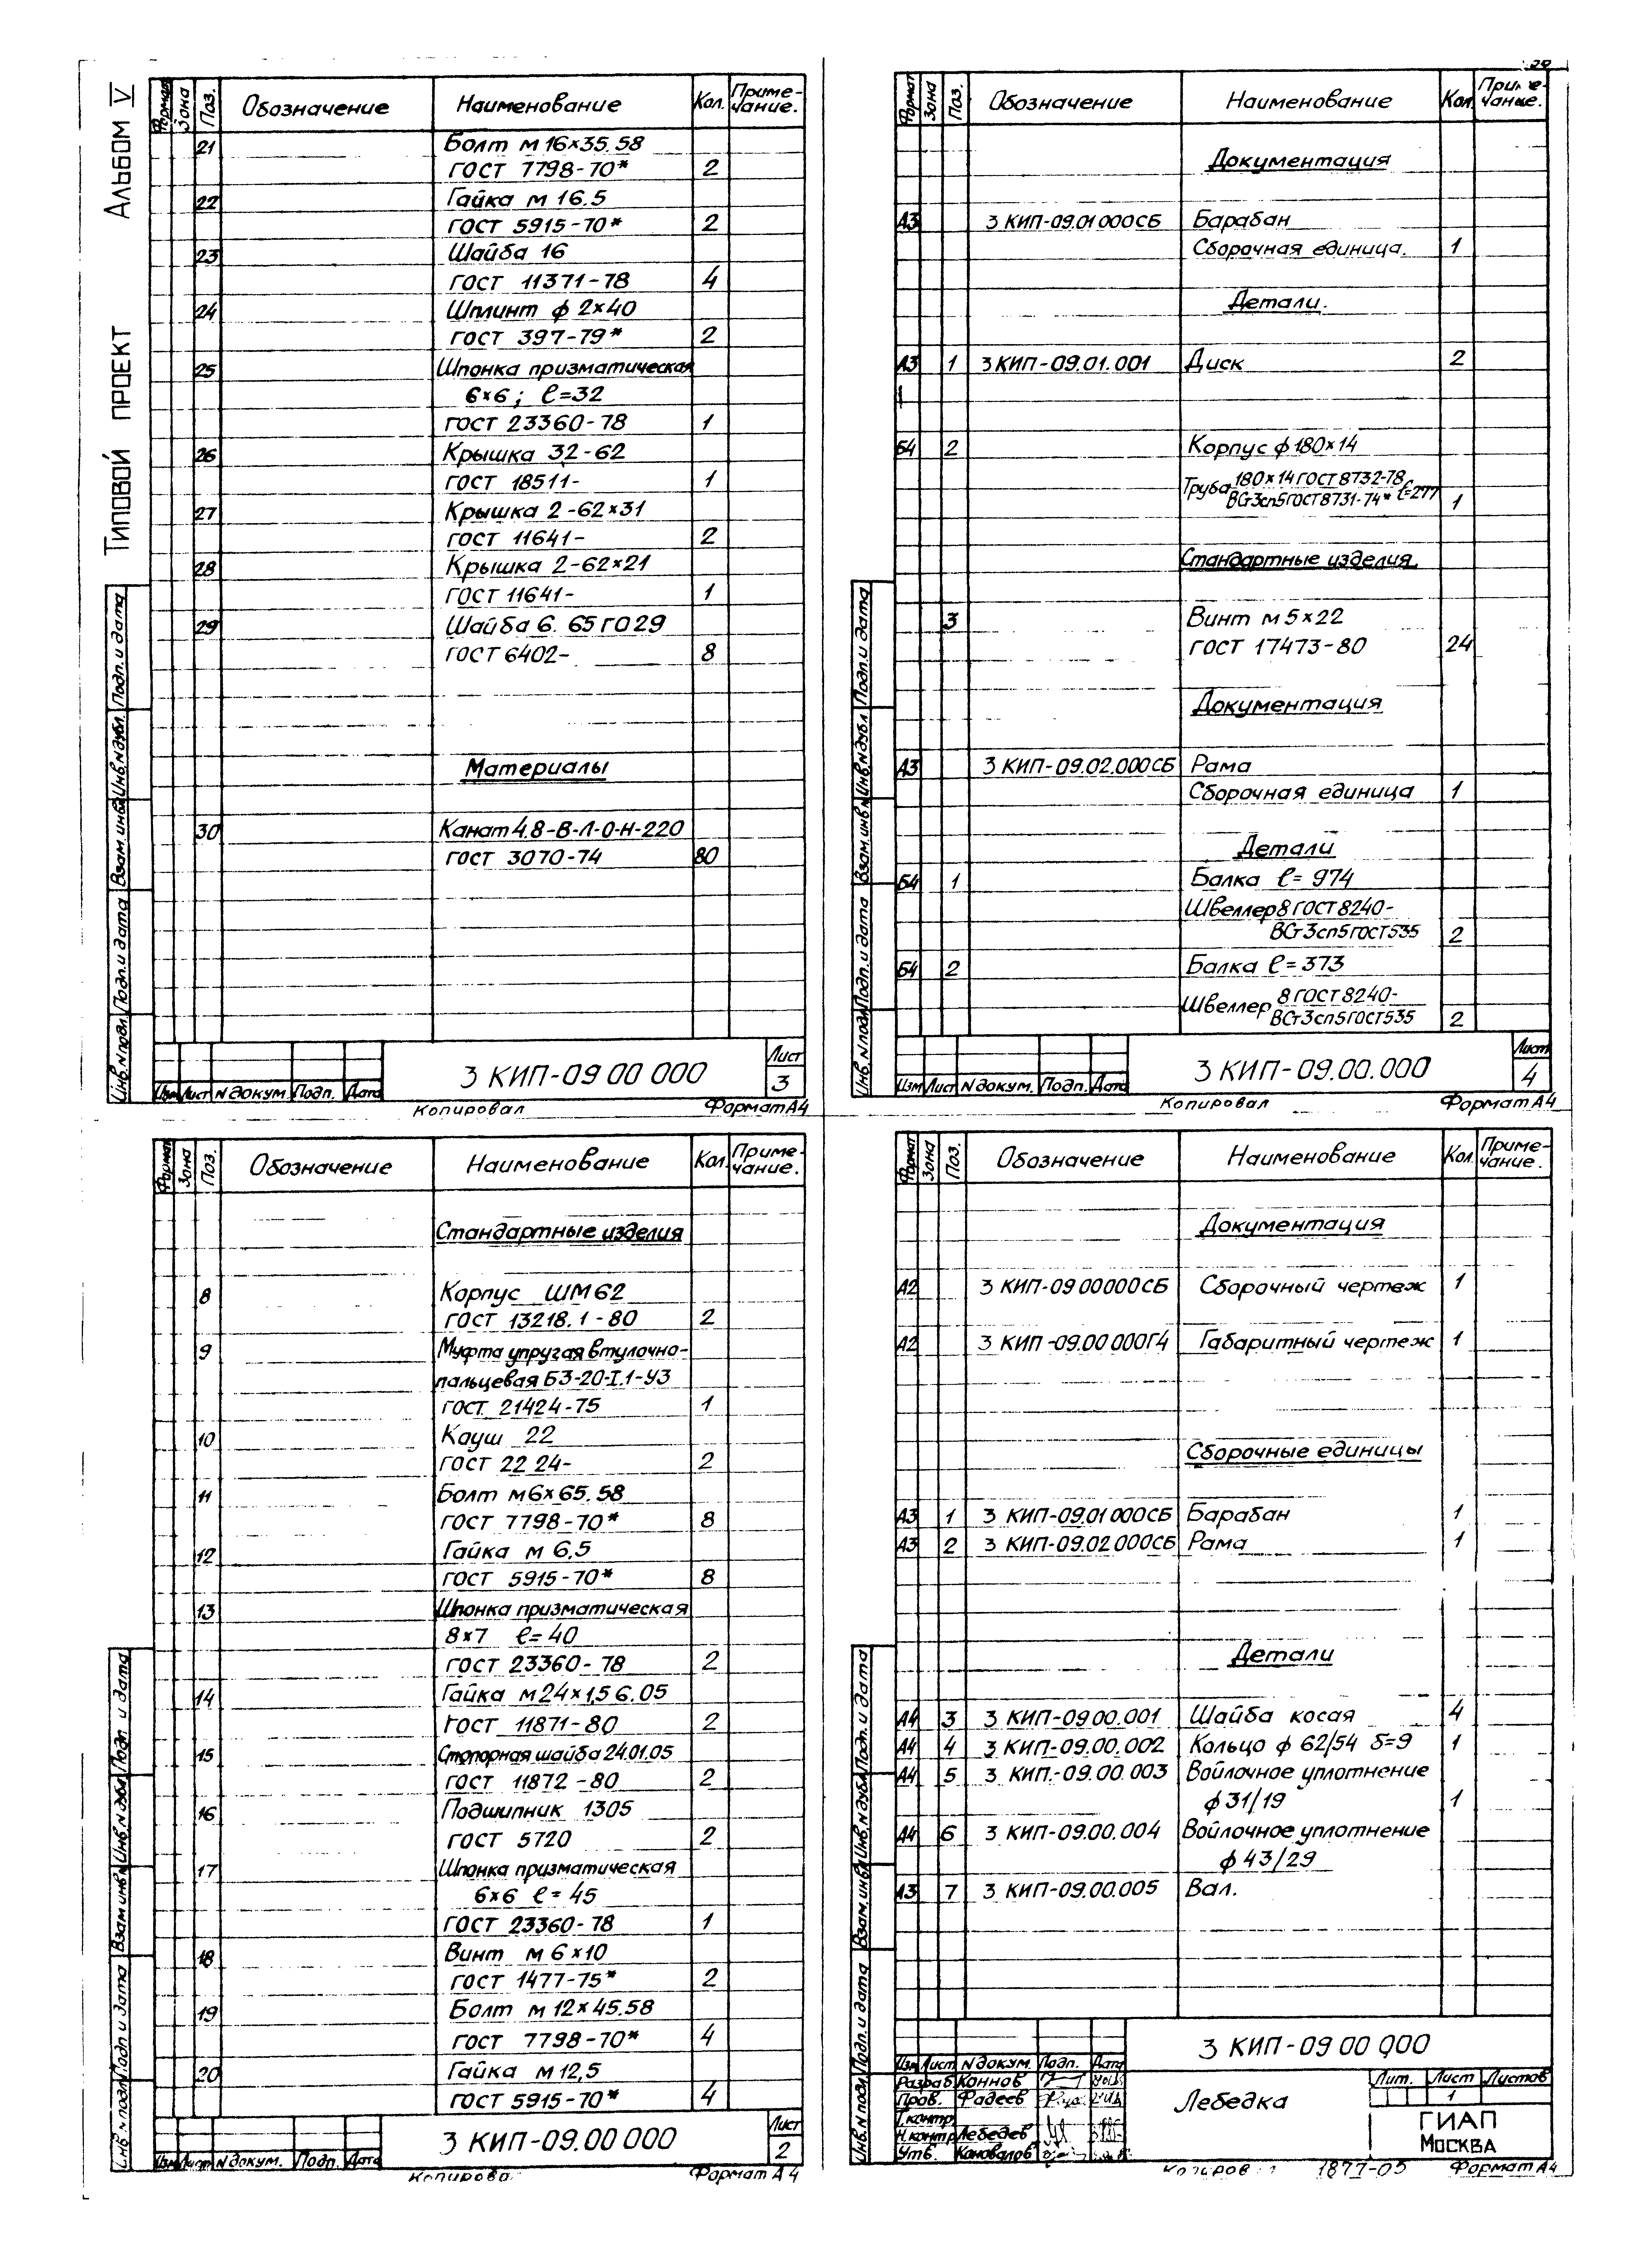 Альбом V
Типовой проект
Формат Зона Поз. Обозначение Наименование Кол. Примечание.
21 Болт м 16×35.58
ГОСТ 7798-70* 2
22 Гайка м 16.5
ГОСТ 5915-70* 2
23 Шайба 16
ГОСТ 11371-78 4
24 Шплинт ф 2×40
ГОСТ 397-79* 2
25 Шпонка призматическая
6×6; ℓ=32
ГОСТ 23360-78 1
26 Крышка 32-62
ГОСТ 18511- 1
27 Крышка 2-62×31
ГОСТ 11641- 2
28 Крышка 2-62×21
ГОСТ 11641- 1
29 Шайба 6. 65 Г 029
ГОСТ 6402- 8
Материалы
30 Канат 4.8-В-Л-О-Н-220
ГОСТ 3070-74 80
Инв. N подл. Подп. и дата Взам. инв. N Инв. N дубл. Подп. и дата
Изм Лист N докум. Подп. Дата
3 КИП-09 00 000
Лист
3
Копировал Формат А4
Формат Зона Поз. Обозначение Наименование Кол. Примечание.
Документация
А3 3 КИП-09.01 000СБ Барабан
Сборочная единица. 1
Детали.
А3 1 3 КИП-09.01.001 Диск 2
Б4 2 Корпус ф 180×14
Труба 180×14 ГОСТ 8732-78 ℓ=277
ВСт3сп5 ГОСТ 8731-74* 1
Стандартные изделия
3 Винт м 5×22
ГОСТ 17473-80 24
Документация
А3 3 КИП-09.02.000СБ Рама
Сборочная единица 1
Детали
Б4 1 Балка ℓ= 974
Швеллер 8 ГОСТ 8240-
ВСт3сп5 ГОСТ 535 2
Б4 2 Балка ℓ=373
Швеллер 8 ГОСТ 8240-
ВСт3сп5 ГОСТ 535 2
Инв. N подл. Подп. и дата Взам. инв. N Инв. N дубл Подп. и дата
Изм Лист N докум. Подп. Дата
3 КИП-09.00.000
Лист
4
Копировал Формат А4
Формат Зона Поз. Обозначение Наименование Кол. Примечание.
Стандартные изделия
8 Корпус ШМ 62
ГОСТ 13218.1-80 2
9 Муфта упругая втулочно-
пальцевая Б3-20-I.1-У3
ГОСТ 21424-75 1
10 Кауш 22
ГОСТ 22 24- 2
11 Болт м6×65.58
ГОСТ 7798-70* 8
12 Гайка м 6.5
ГОСТ 5915-70* 8
13 Шпонка призматическая
8×7 ℓ=40
ГОСТ 23360-78 2
14 Гайка м24×1,5 6.05
ГОСТ 11871-80 2
15 Стопорная шайба 24.01.05
ГОСТ 11872-80 2
16 Подшипник 1305
ГОСТ 5720 2
17 Шпонка призматическая
6×6 ℓ=45
ГОСТ 23360-78 1
18 Винт м 6×10
ГОСТ 1477-75* 2
19 Болт м 12×45.58
ГОСТ 7798-70* 4
20 Гайка м12,5
ГОСТ 5915-70* 4
Инв. N подл Подп и дата Взам. инв. N Инв. N дубл Подп и дата
Изм Лист N докум. Подп. Дата
3 КИП-09.00 000
Лист
2
Формат А4
Формат Зона Поз. Обозначение Наименование Кол. Примечание.
Документация
А2 3 КИП-09 00000СБ Сборочный чертеж 1
А2 3 КИП-09.00 000Г4 Габаритный чертеж 1
Сборочные единицы
А3 1 3 КИП-09.01 000СБ Барабан 1
А3 2 3 КИП-09.02 000СБ Рама 1
Детали
А4 3 3 КИП-09.00.001 Шайба косая 4
А4 4 3 КИП-09.00.002 Кольцо ф 62/54 δ=9 1
А4 5 3 КИП-09.00.003 Войлочное уплотнение
ф 31/19 1
А4 6 3 КИП-09.00.004 Войлочное уплотнение
ф 43/29
А3 7 3 КИП-09.00.005 Вал.
Инв. N подл Подп. и дата Взам. инв. N Инв. N дубл Подп. и дата
Изм Лист N докум. Подп. Дата
Разраб Коннов
Пров. Фадеев
Т.контр
Н.контр Лебедев
Утв. Коновалов
3 КИП-09 00 000
Лебедка
Лит. Лист Листов
1
ГИАП
Москва
1877-05 Формат А4